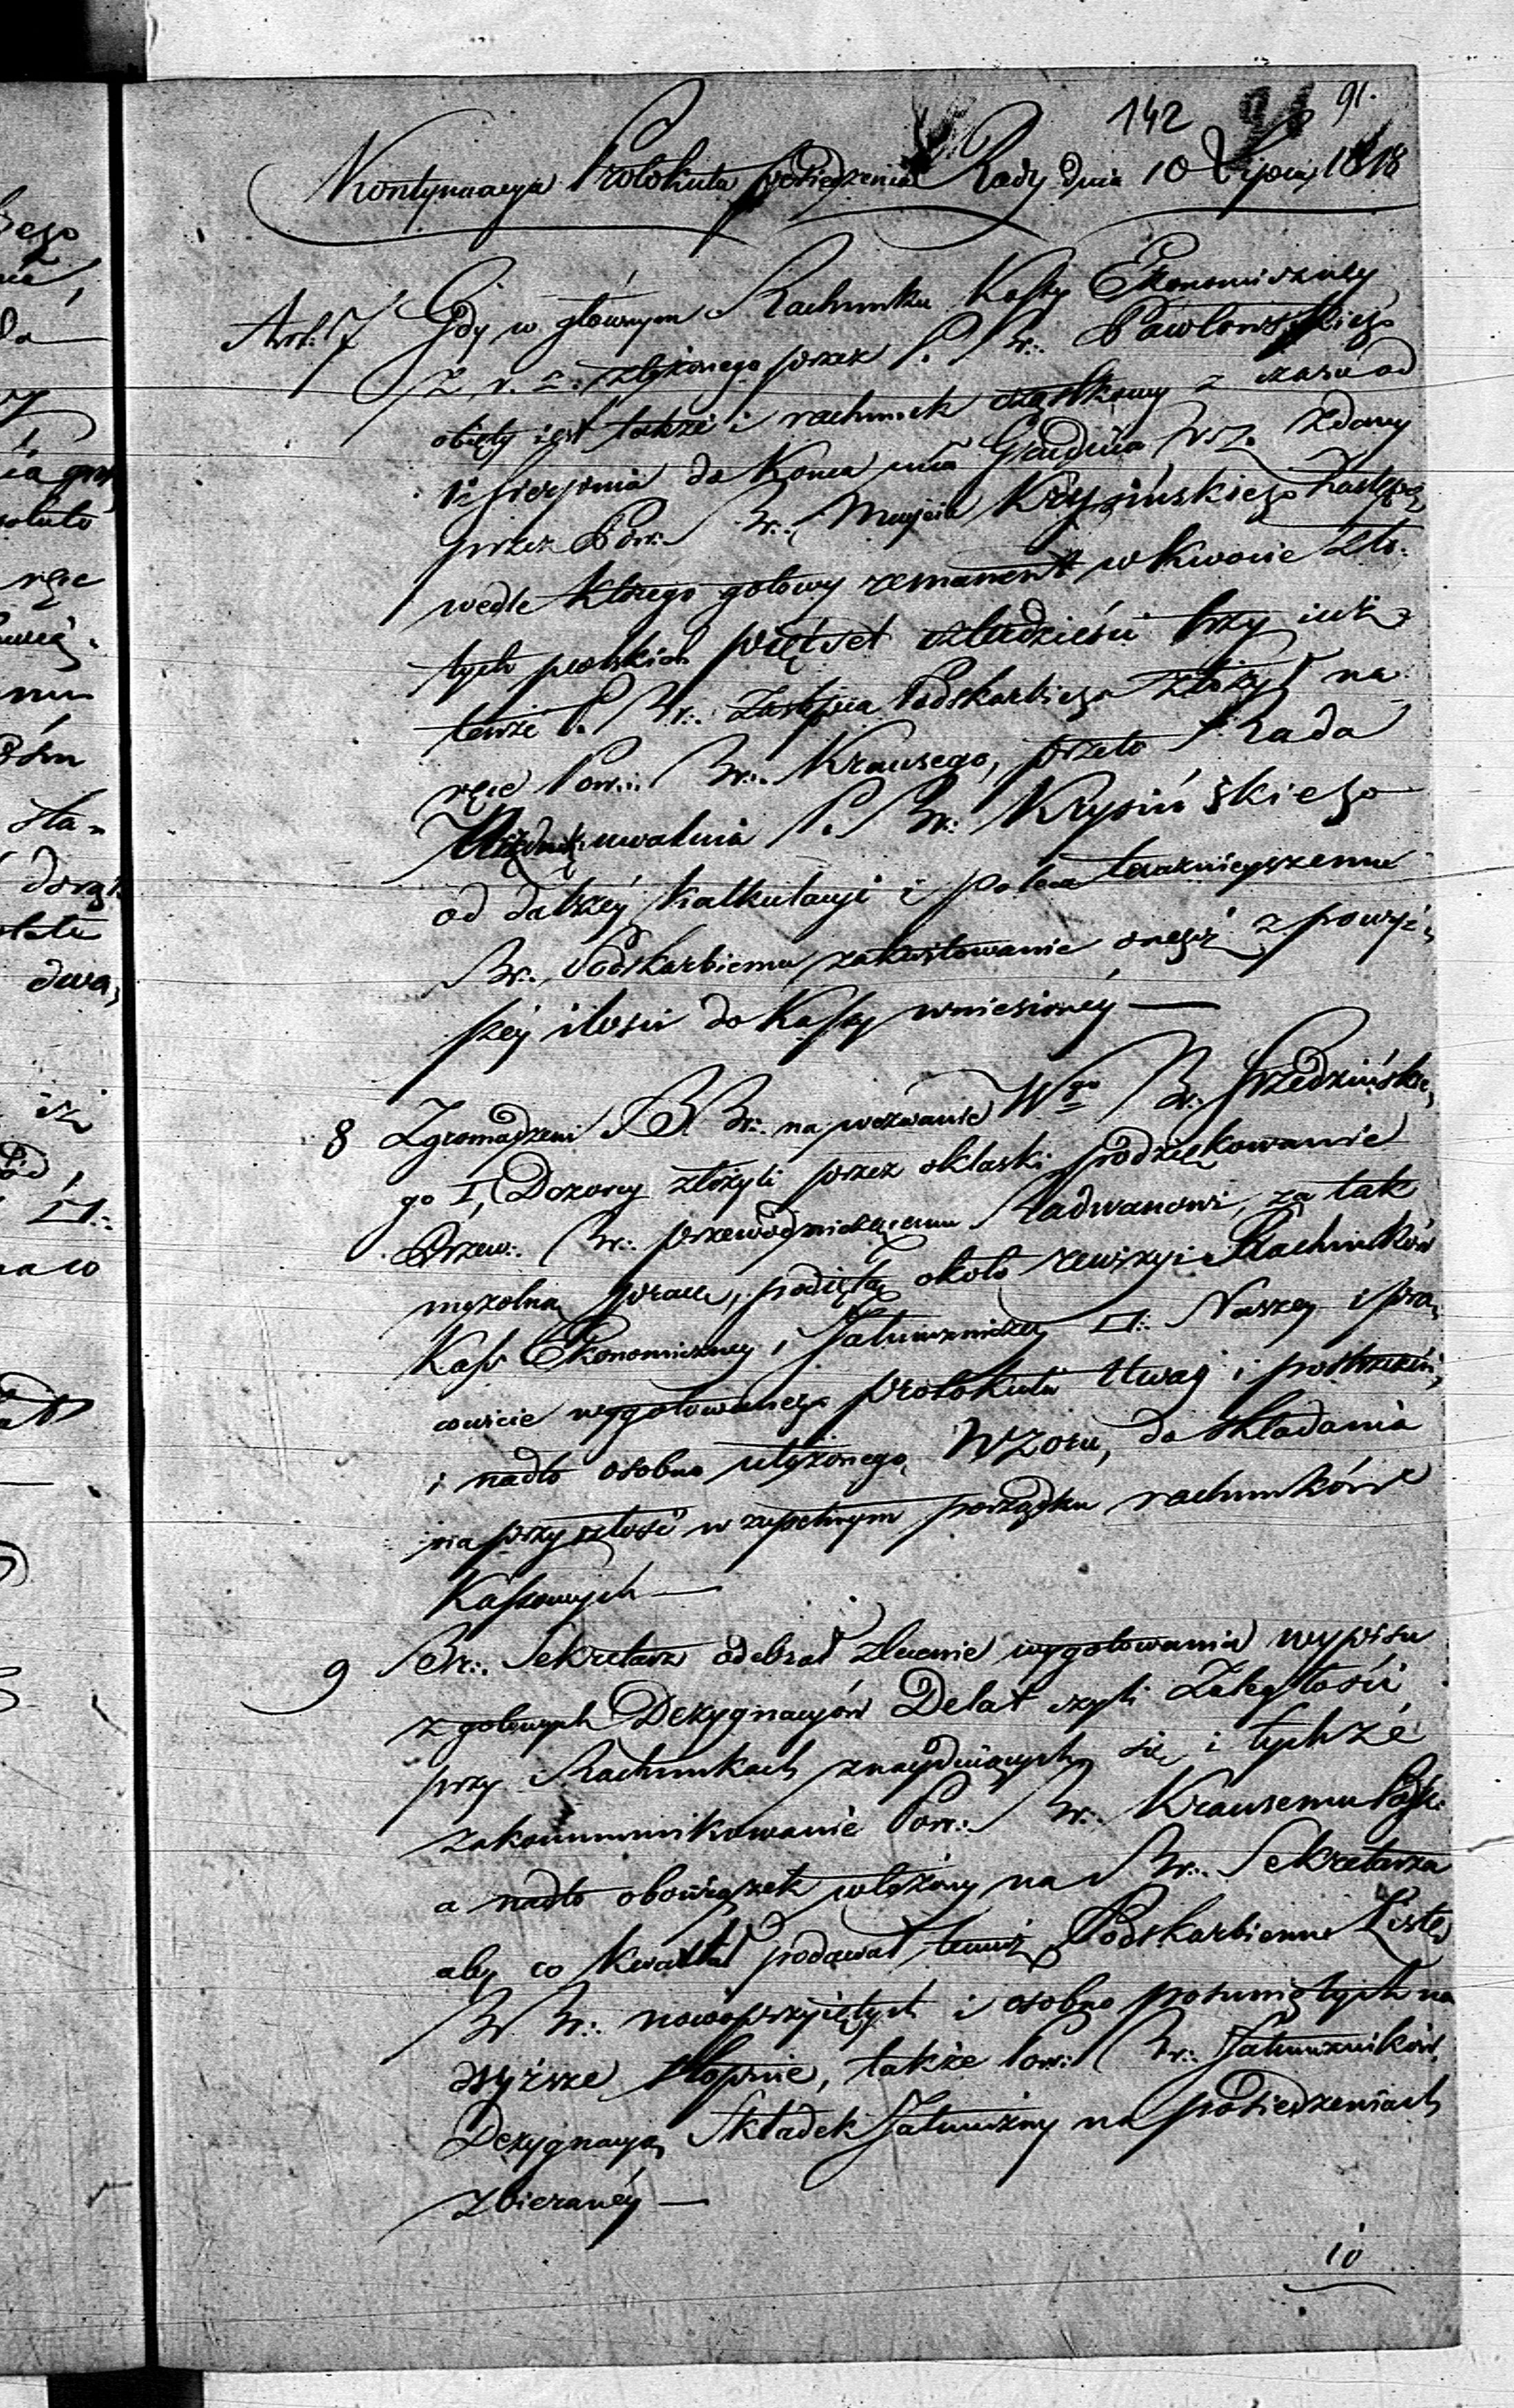 142 91.
Kontynuacya Protokułu posiedzenia Rady dnia 10 Lipca 1818
Art: 7 Gdy w głównym Rachunku Kassy Ekonomiczney
z r. z. złożonego przez P. Br:. Pawłowskiego
obięty iest także i rachunek cząstkowy z czasu od
1º sierpnia do końca mca Grudnia r. z. zdany
przez Pow:. Br:. Krysińskiego Zastępcę
wedle którego gotowy remanent w kwocie Zło-
tych polskich pięćset trzy iuż
tenże P. Br:. Zastępca Podskarbiego złożył na
ręce Pow:. Br:. Krausego, przeto Rada
uwalnia P. Br:. Krysińskiego
od dalszéy kalkulacyi i poleca teraźnieyszemu
Br:. Podskarbiemu zakwitowanie onegoż z powyż-
széy ilości do Kassy wniesionéy —
8 Zgromadzeni BBr:. na wezwanie Wgo Br:.
go I, Dozorcy złożyli przez oklaski podziękowanie
Przew:. Br:. przewodniczącemu Radwanowi, za tak
mozolną pracę, podiętą około rewizyi Rachunków
Kass Ekonomiczney i Jałmużniczey □:. Naszey i pra-
cowicie wygotowanego protokułu Uwag i postrzeżeń,
i nadto osobno ułożonego Wzoru, do składania
na przyszłość w zupełnym porządku rachunków
Kassowych —
9 Br:. Sekretarz odebrał zlecenie wygotowania wypisu
z gotowych Dezygnacyów Delat czyli Zaległości
przy Rachunkach znayduiących się i tychże
zakommunikowanie Pow:. Br:. Krausemu Podsk:
a nadto obowiązek włożony na Br:. Sekretarza
aby co kwartał podawał temuż Podskarbiemu Listę
BBr:. nowoprzyiętych i osobno posuniętych na
wyższe stopnie, także Pow:. Br:. Jałmużników
Dezygnacyą Składek Jałmużny na posiedzeniach
zbieranéy —
10